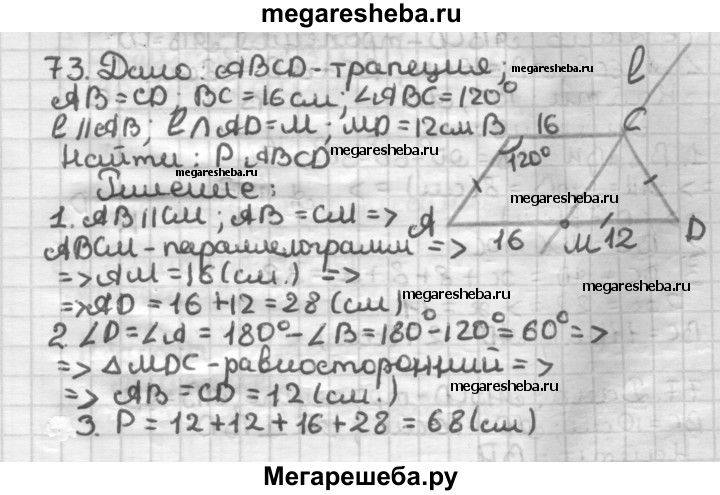 megaresheba.ru
73. Дано: ABCD - трапеция;
megaresheba.ru
ℓ
AB = CD; BC = 16 см; ∠ABC = 120°
ℓ ∥ AB; ℓ ∩ AD = M; MD = 12 см
B 16 C
Найти: P ABCD
megaresheba.ru
120°
Решение:
megaresheba.ru
1. AB ∥ CM; AB = CM =>
A 16 M 12 D
ABCM - параллелограмм =>
megaresheba.ru
=> AM = 16 (см.) =>
=> AD = 16 + 12 = 28 (см)
megaresheba.ru
2. ∠D = ∠A = 180° - ∠B = 180° - 120° = 60° =>
=> △MDC - равносторонний =>
=> AB = CD = 12 (см.)
megaresheba.ru
3. P = 12 + 12 + 16 + 28 = 68 (см)
Мегарешеба.ру